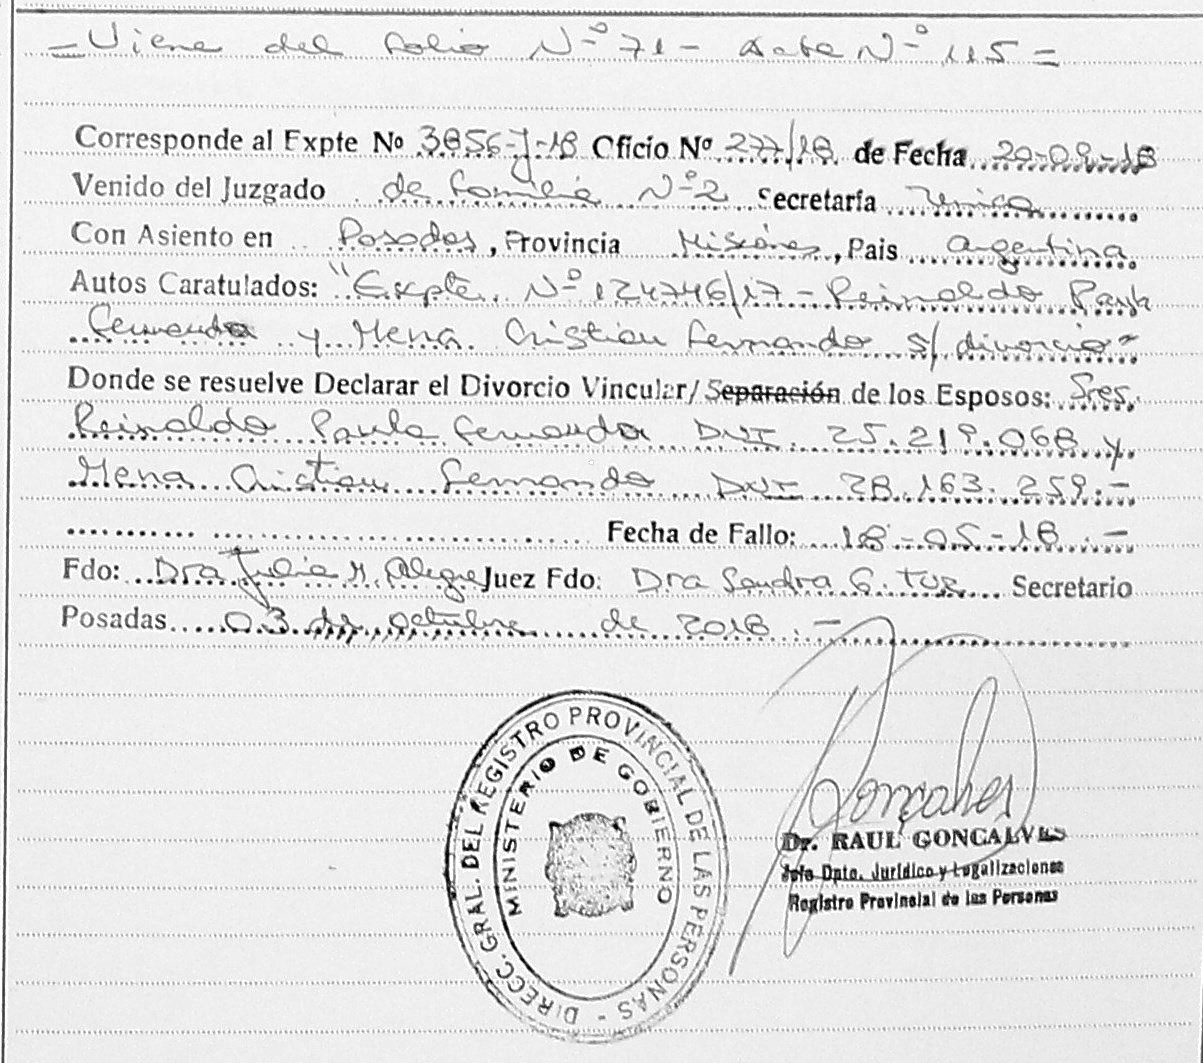 = Viene del folio Nº 71 - Acta Nº 115 =
Corresponde al Expte Nº 3856-J-18 Oficio Nº 277/18 de Fecha 20-09-18
Venido del Juzgado de Familia Nº 2 Secretaría Unica
Con Asiento en Posadas, Provincia Misiones, Pais Argentina
Autos Caratulados: "Expte. Nº 124746/17 - Reinaldo Paula
Fernanda y Mena Cristian Fernando s/ divorcio"
Donde se resuelve Declarar el Divorcio Vincular/Separación de los Esposos: Sres.
Reinaldo Paula Fernanda DNI. 25.219.068 y
Mena Cristian Fernando DNI 28.163.259.-
Fecha de Fallo: 18-05-18.-
Fdo: Dra Julia M. Alegre Juez Fdo: Dra Sandra G. Tur Secretario
Posadas 03 de octubre de 2018.-
DIRECC. GRAL. DEL REGISTRO PROVINCIAL DE LAS PERSONAS -
MINISTERIO DE GOBIERNO
Goncalves
Dr. RAUL GONCALVES
Jefe Dpto. Jurídico y Legalizaciones
Registro Provincial de las Personas